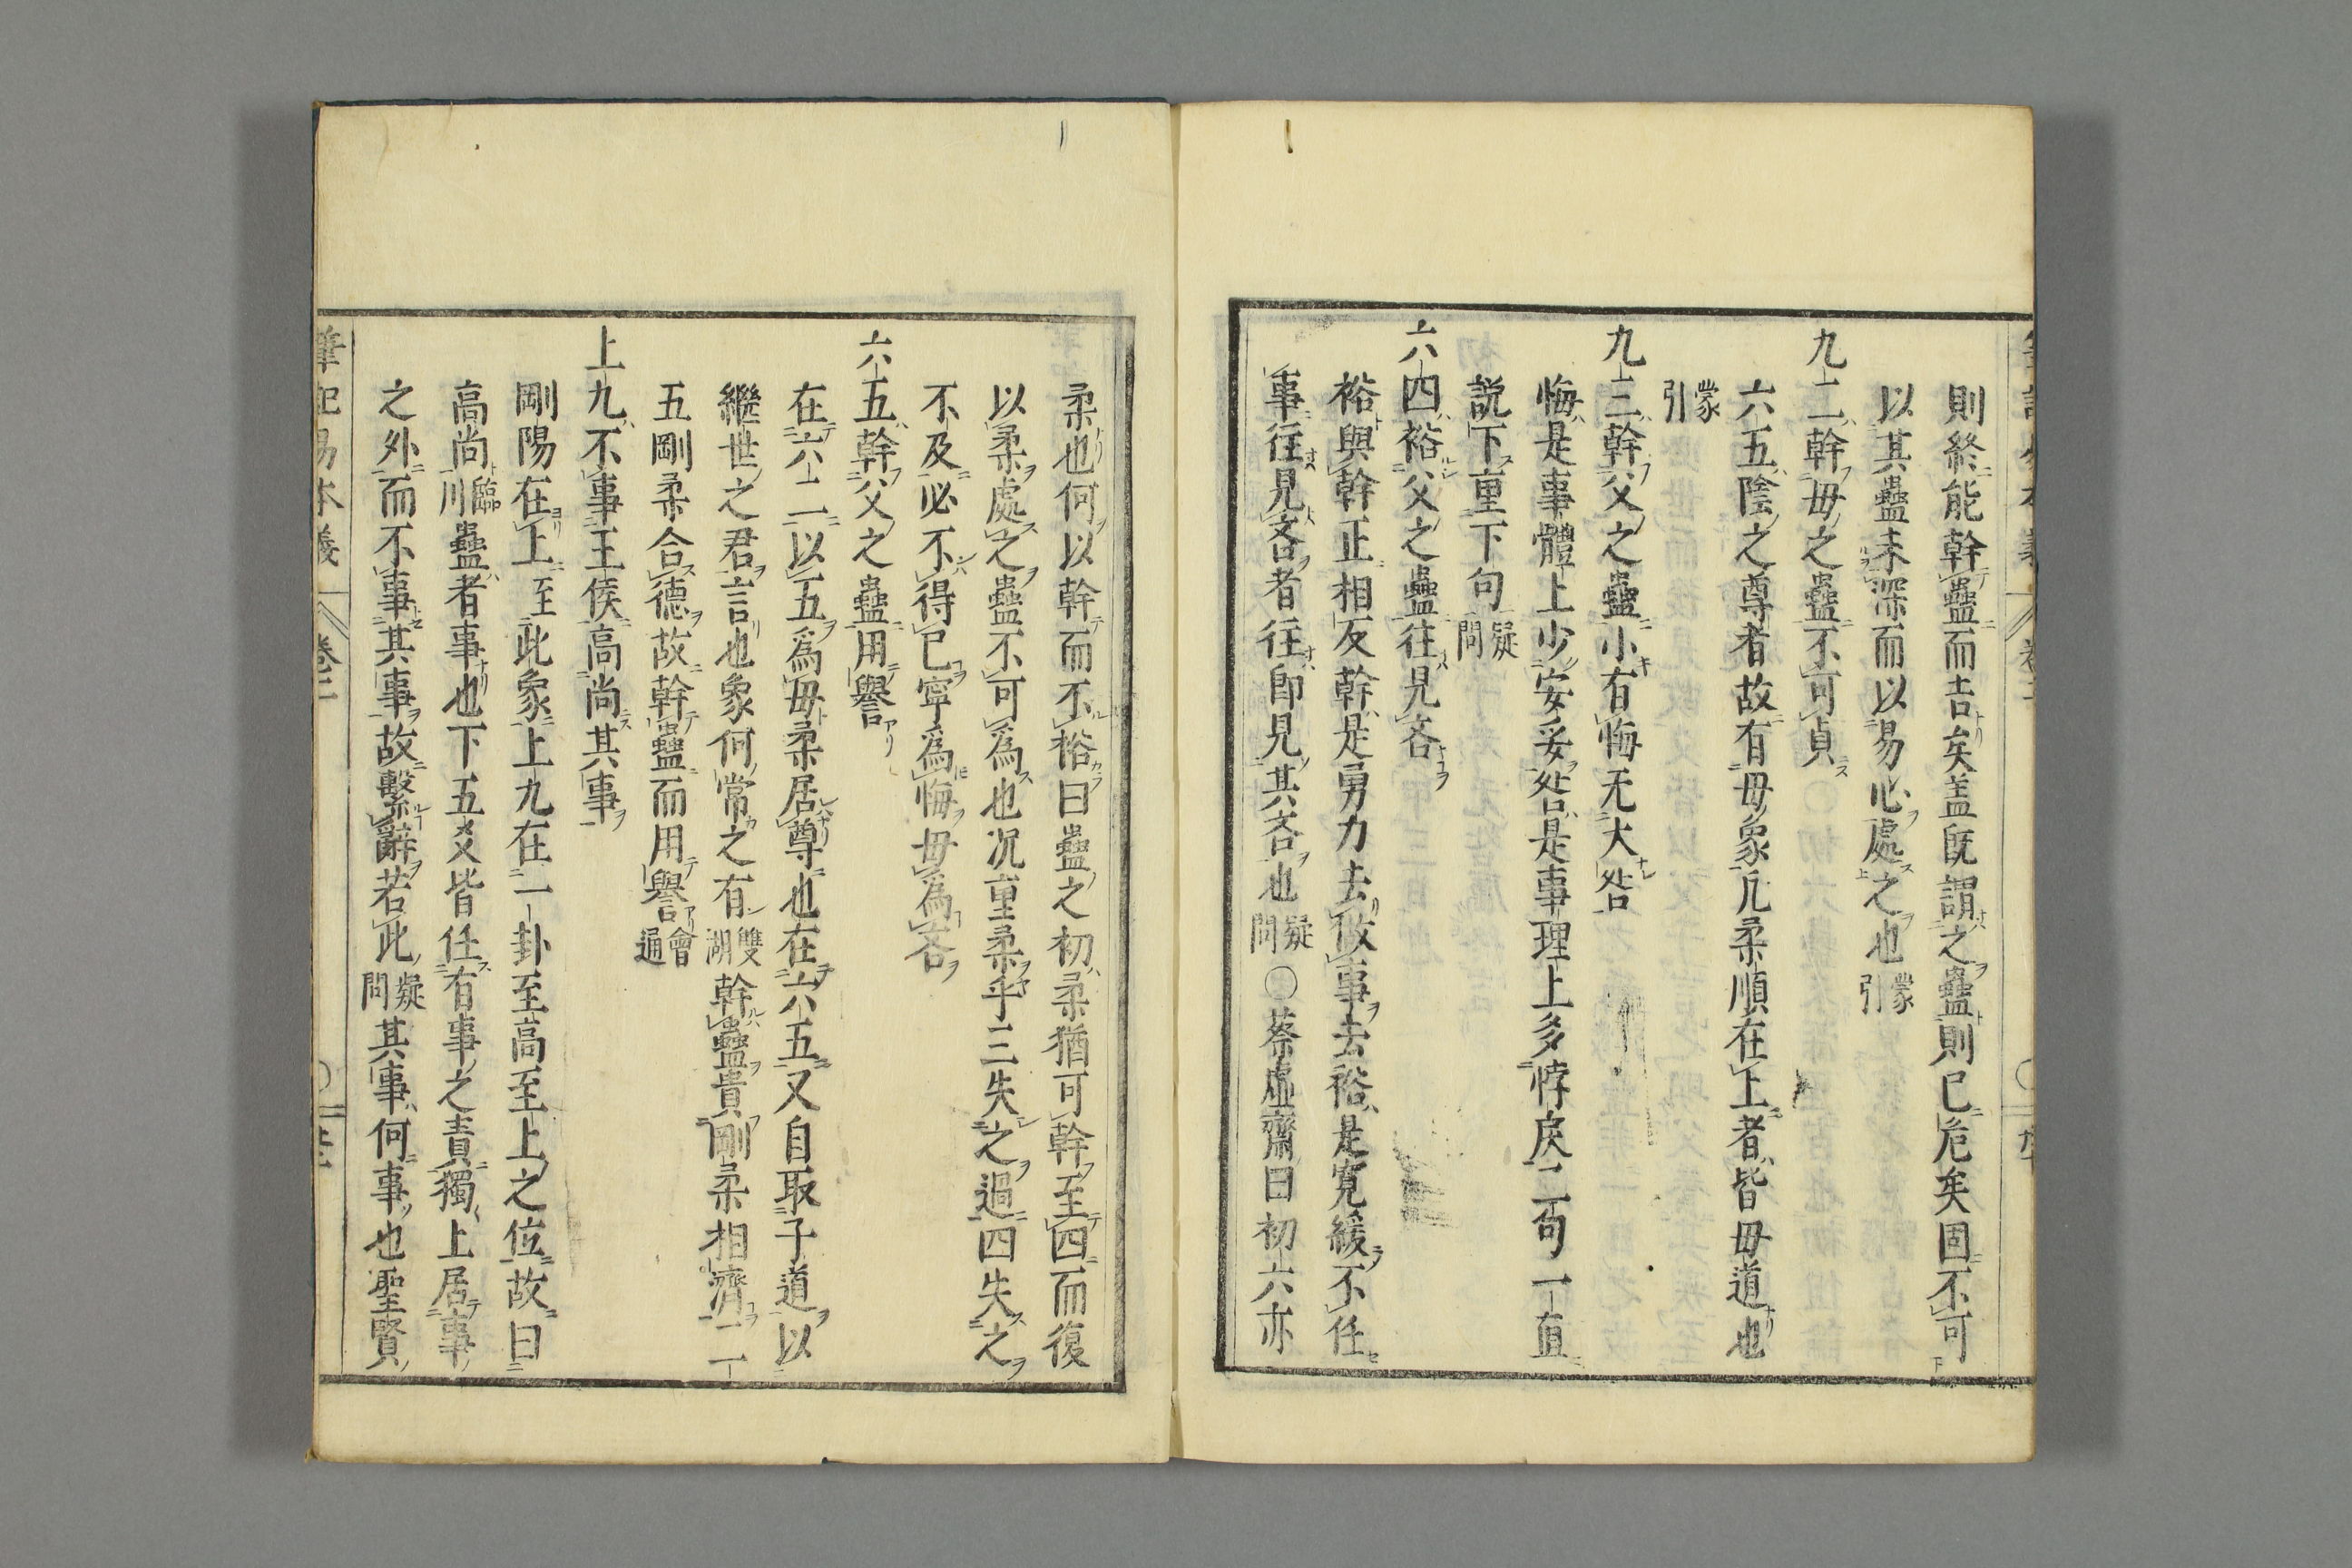 則終能幹蠱而吉矣盖既謂之蠱則已危矣固不可
以其蠱未深而以易心處之也蒙引
九二幹母之蠱不可貞
六五陰之尊者故有母象凡柔順在上者皆母道也
蒙引
九三幹父之蠱小有悔无大咎
悔是事體上少安妥咎是事理上多悖戾二句一直
説下重下句疑問
六四裕父之蠱往見吝
裕與幹正相反幹是勇力去做事去裕是寛緩不任
事往見吝者往即見其吝也疑問〇蔡虚齋曰初六亦
柔也何以幹而不裕曰蠱之初柔猶可幹至四而復
以柔處之蠱不可為也况重柔乎三失之過四失之
不及必不得已寧為悔毋為吝
六五幹父之蠱用譽
在六二以五為母柔居尊也在六五又自取子道以
繼世之君言也象何常之有雙湖幹蠱貴剛柔相濟二
五剛柔合德故幹蠱而用譽會通
上九不事王侯高尚其事
剛陽在上至此象上九在一卦至高至上之位故曰
高尚臨川蠱者事也下五爻皆任有事之責獨上居事
之外而不事其事故繫辭若此疑問其事何事也聖賢
筆記易本義 卷二